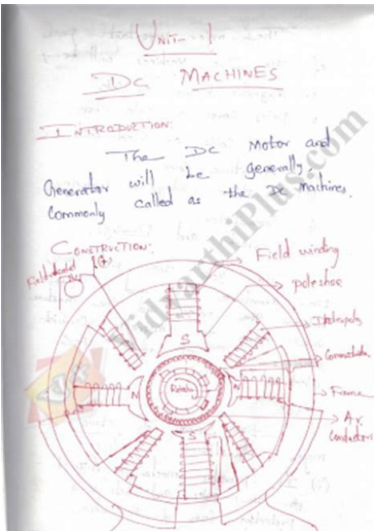 UNIT-1
DC MACHINES
INTRODUCTION:
The DC Motor and
Generator will be generally,
Commonly called as the DC Machines.
CONSTRUCTION:
Field winding
Poleshoe
Interpoles
Commutator
Frame
Ar
Conductors
S
N
S
VidyarthiPlus.com